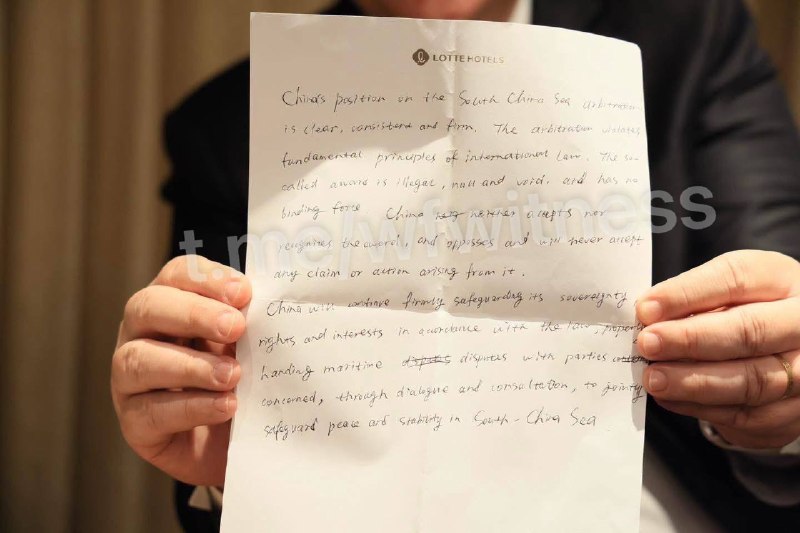 LOTTE HOTELS
China's position on the South China Sea arbitration
is clear, consistent and firm. The arbitration violates
fundamental principles of international law. The so-
called award is illegal, null and void. and has no
binding force China neither accepts nor
recognizes the award, and opposses and will never accept
any claim or action arising from it.
China will continue firmly safeguarding its sovereignty
rights and interests in accordance with the law, properly
handing maritime disputes with parties
concerned, through dialogue and consultation, to jointly
safeguard peace and stability in South-China Sea
t.me/wfwitness